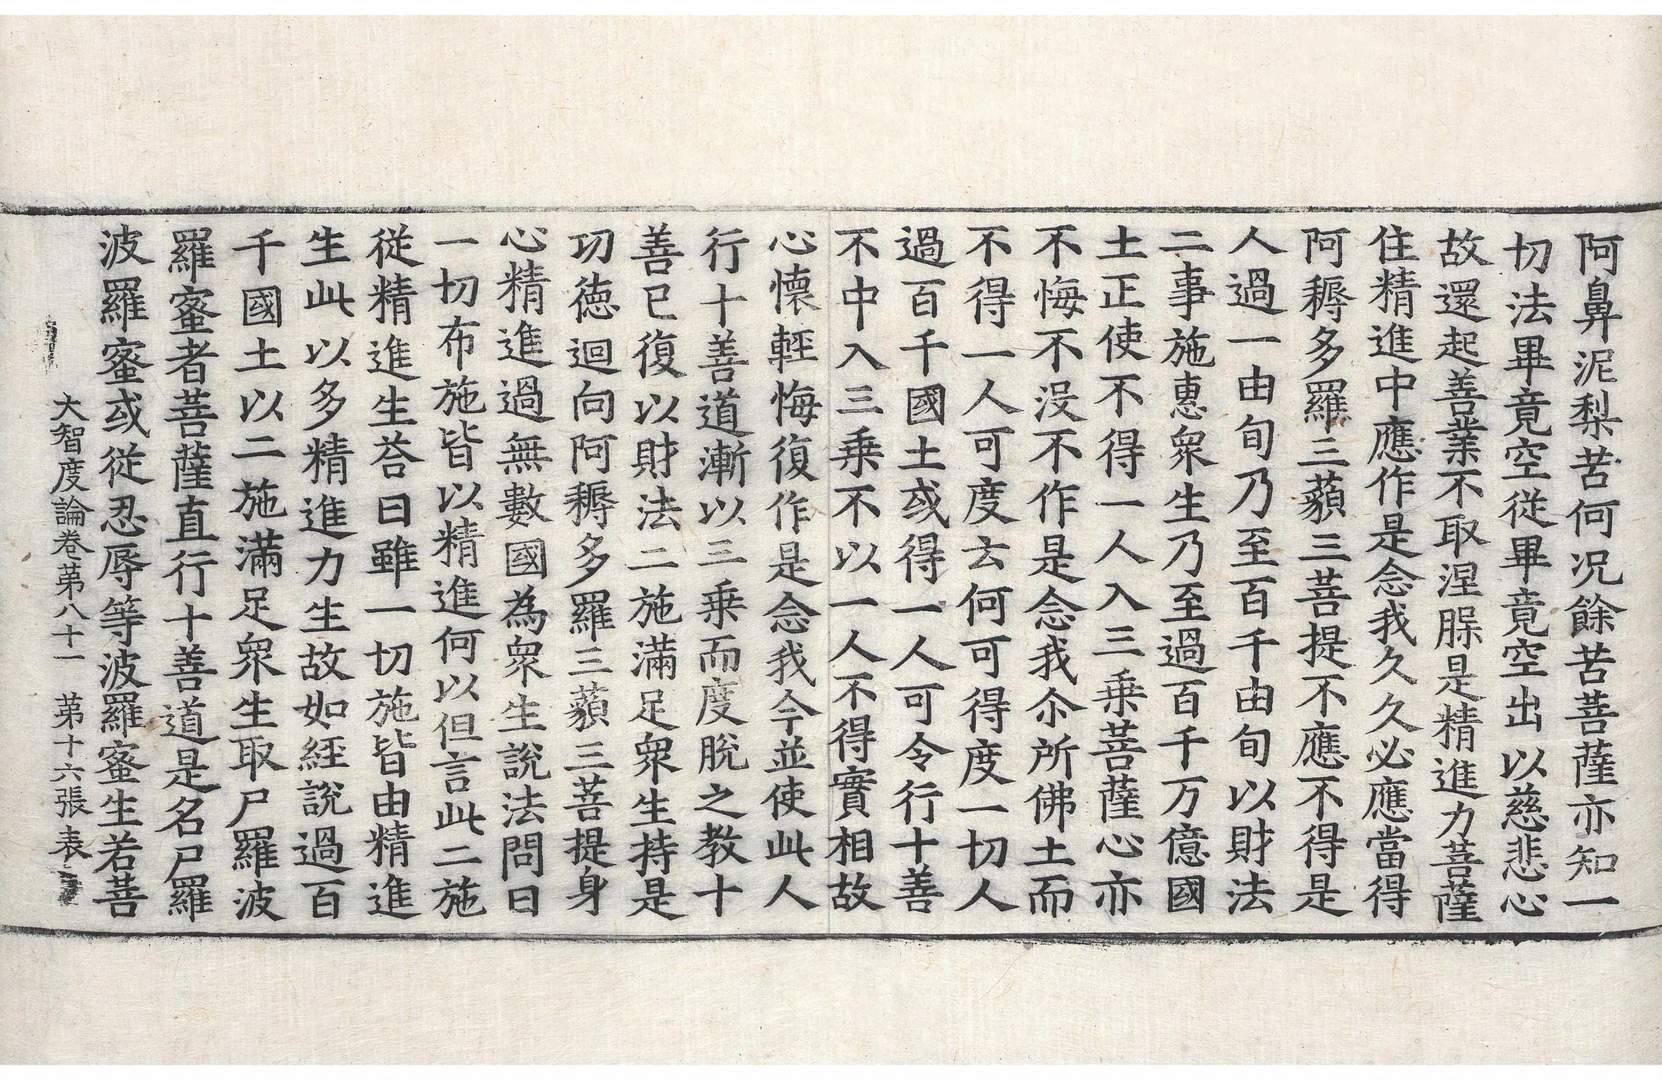 阿鼻泥梨苦何況餘苦菩薩亦知一
切法畢竟空從畢竟空出以慈悲心
故還起善業不取涅䏶是精進力菩薩
住精進中應作是念我久久必應當得
阿耨多羅三藐三菩提不應不得是
人過一由旬乃至百千由旬以財法
二事施惠衆生乃至過百千万億國
土正使不得一人入三乗菩薩心亦
不悔不没不作是念我尒所佛土而
不得一人可度云何可得度一切人
過百千國土或得一人可令行十善
不中入三乗不以一人不得實相故
心懷輕悔復作是念我今並使此人
行十善道漸以三乗而度脫之教十
善已復以財法二施滿足衆生持是
功德迴向阿耨多羅三藐三菩提身
心精進過無數國為衆生說法問曰
一切布施皆以精進何以但言此二施
從精進生荅曰雖一切施皆由精進
生此以多精進力生故如經說過百
千國土以二施滿足衆生取尸羅波
羅蜜者菩薩直行十善道是名尸羅
波羅蜜或從忍辱等波羅蜜生若菩
大智度論卷第八十一 第十六張 表